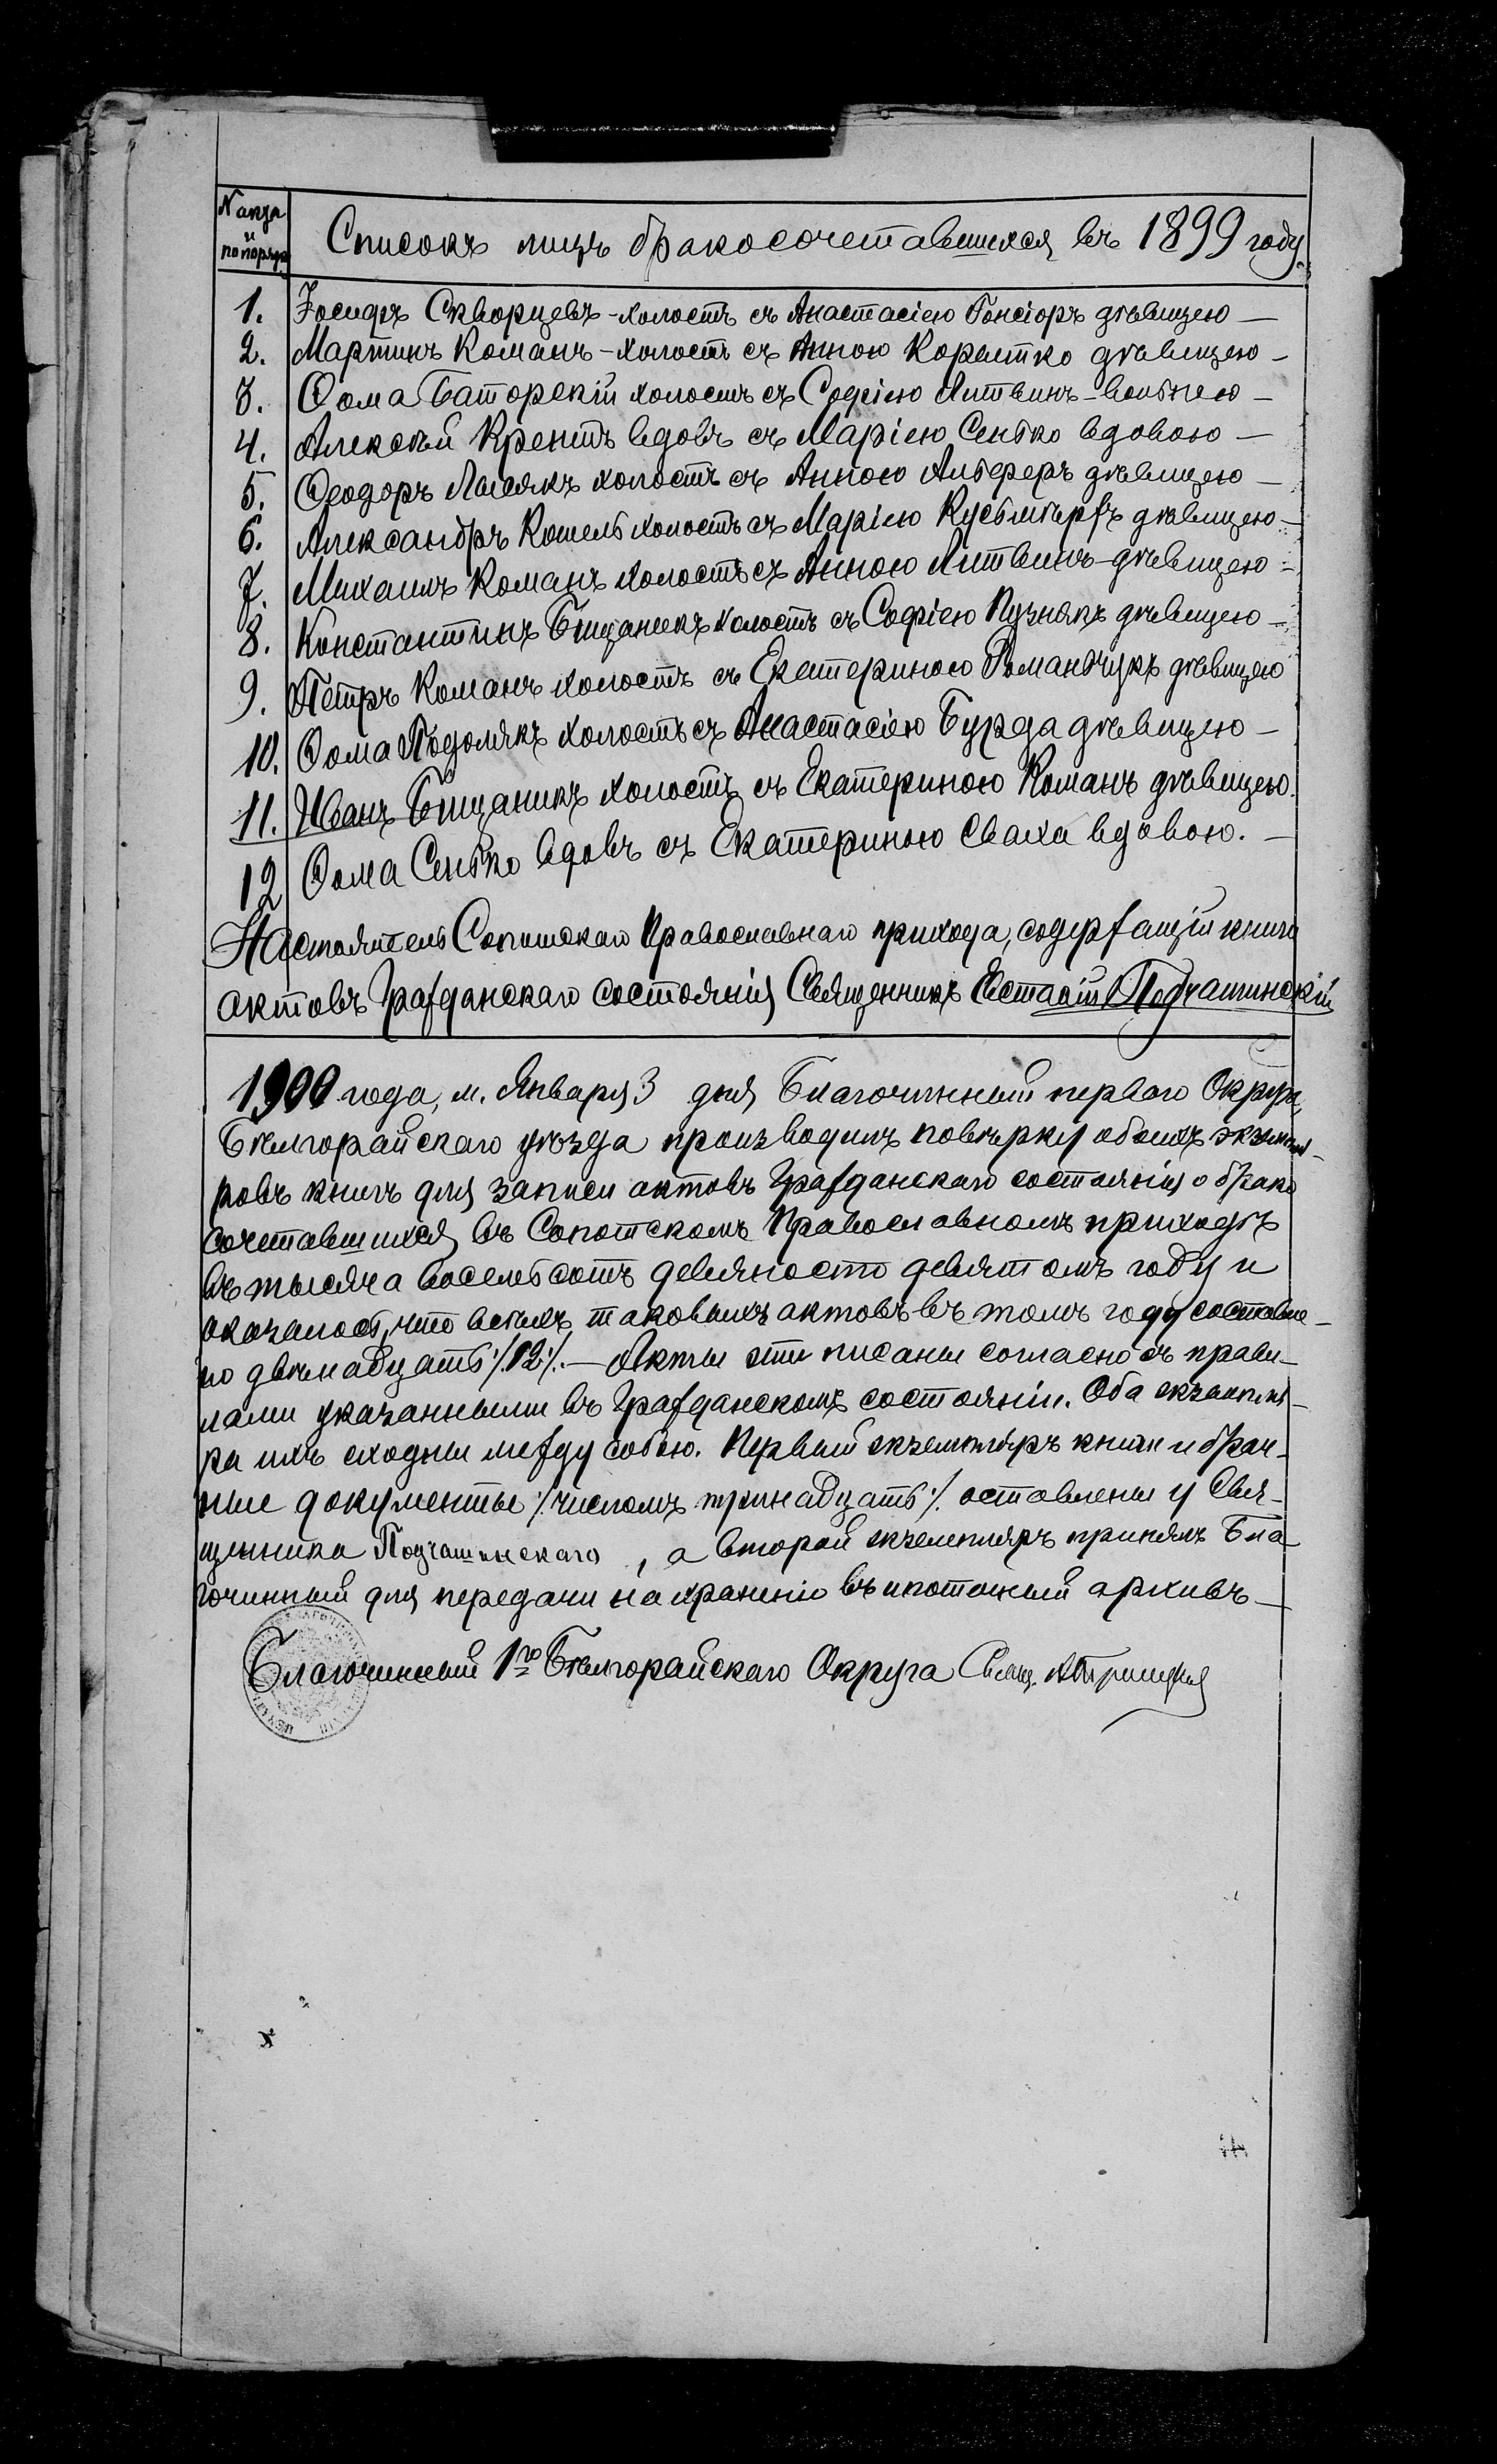 N акта
и
по поряд.
Списокъ лицъ бракосочетавшихся въ 1899 году.
1. Іосифъ Скворцевъ - холостъ съ Анастасіею Гонсіоръ дѣвицею —
2. Мартинъ Команъ - холостъ съ Анною Корештко дѣвицею —
3. Ѳома Баторскій холостъ съ Софіею Литвинъ - вольнею —
4. Алексѣй Кренть вдовъ съ Маріею Сенько вдовою —
5. Ѳеодоръ Лысякъ холостъ съ Анною Альберъ дѣвицею —
6. Александръ Кошель холостъ съ Маріею дѣвицею —
7. Михаилъ Команъ холостъ съ Анною Литвинъ - дѣвицею —
8. Константинъ Бищаникъ холостъ съ Софіею Пузнякъ дѣвицею —
9. Петръ Команъ холостъ съ Екатериною Романчукъ дѣвицею
10. Ѳома Подолякъ холостъ съ Анастасіею Бурда дѣвицею —
11. Иванъ Бищаникъ холостъ съ Екатериною Команъ дѣвицею.
12 Ѳома Сенько вдовъ съ Екатериною Сваха вдовою. —
Настоятель Сопотскаго Православнаго прихода, содержащій книги
актовъ Гражданскаго состоянія Священникъ Евстафій Подчашинскій
1900 года, м. Января 3 дня Благочинный перваго Округа,
Бѣлгорайскаго уѣзда производилъ повѣрку обоихъ экземпля-
ровъ книгъ для записи актовъ Гражданскаго состоянія о брако
сочетавшихся въ Сопотскомъ Православномъ приходѣ
въ тысяча восемьсотъ девяносто девятомъ году и
оказалось, что всѣхъ таковыхъ актовъ въ томъ году составле-
но двѣнадцать /:12:/. — Акты эти писаны согласно съ прави-
лами указанными въ Гражданскомъ состояніи. Оба экземпля-
ра ихъ сходны между собою. Первый экземпляръ книги и брач-
ные документы /:числомъ тринадцать:/ оставлены у Свя-
щенника Подчашинскаго, а второй экземпляръ принялъ Бла
гочинный для передачи на храненіе въ ипотечный архивъ —
Благочинный 1го Бѣлгорайскаго Округа Свящ.